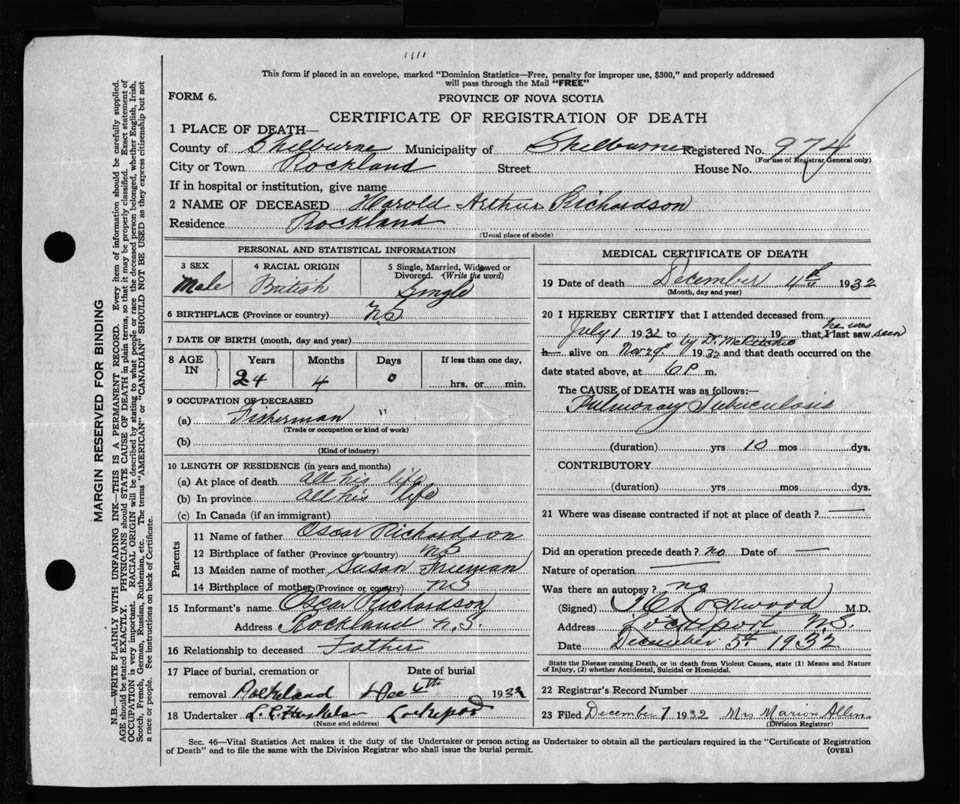 This form if placed in an envelope, marked "Dominion Statistics—Free, penalty for improper use, $300," and properly addressed
will pass through the Mail "FREE"
FORM 6.
PROVINCE OF NOVA SCOTIA
CERTIFICATE OF REGISTRATION OF DEATH
1 PLACE OF DEATH—
County of Shelburne Municipality of Shelburne Registered No. 974
(For use of Registrar General only)
City or Town Rockland Street House No.
If in hospital or institution, give name
2 NAME OF DECEASED Harold Arthur Richardson
Residence Rockland
(Usual place of abode)
PERSONAL AND STATISTICAL INFORMATION
3 SEX 4 RACIAL ORIGIN 5 Single, Married, Widowed or
Divorced. (Write the word)
Male British Single
6 BIRTHPLACE (Province or country) N.S
7 DATE OF BIRTH (month, day and year)
8 AGE IN Years Months Days If less than one day,
24 4 0 hrs. or min.
9 OCCUPATION OF DECEASED
(a) Fisherman "
(Trade or occupation or kind of work)
(b)
(Kind of industry)
10 LENGTH OF RESIDENCE (in years and months)
(a) At place of death all his life
(b) In province all his life
(c) In Canada (if an immigrant)
Parents
11 Name of father Oscar Richardson
12 Birthplace of father (Province or country) NS
13 Maiden name of mother Susan Frieman
14 Birthplace of mother (Province or country) NS
15 Informant's name Oscar Richardson
Address Rockland N.S.
16 Relationship to deceased Father
17 Place of burial, cremation or Date of burial
removal Rockland Dec 6th 1932
18 Undertaker Lockeport
(Name and address)
MEDICAL CERTIFICATE OF DEATH
19 Date of death December 4th 1932
(Month, day and year)
20 I HEREBY CERTIFY that I attended deceased from
July 1 1932 to 19 that I last saw he was seen
by Dr.
h alive on Nov. 29th 1932 and that death occurred on the
date stated above, at 6 P. m.
The CAUSE of DEATH was as follows:—
Pulmonary Tuberculosis
(duration) yrs 10 mos dys.
CONTRIBUTORY
(duration) yrs mos dys.
21 Where was disease contracted if not at place of death? —
Did an operation precede death? no Date of —
Nature of operation —
Was there an autopsy? no
(Signed) Lockwood M.D.
Address Lockeport N.S.
Date December 5th 1932
State the Disease causing Death, or in death from Violent Causes, state (1) Means and Nature
of Injury, (2) whether Accidental, Suicidal or Homicidal.
22 Registrar's Record Number
23 Filed December 7 1932 Mrs Marion Allen
(Division Registrar)
Sec. 46—Vital Statistics Act makes it the duty of the Undertaker or person acting as Undertaker to obtain all the particulars required in the "Certificate of Registration
of Death" and to file the same with the Division Registrar who shall issue the burial permit. (OVER)
MARGIN RESERVED FOR BINDING
N.B.—WRITE PLAINLY WITH UNFADING INK—THIS IS A PERMANENT RECORD. Every item of information should be carefully supplied.
AGE should be stated EXACTLY. PHYSICIANS should STATE CAUSE OF DEATH in plain terms, so that it may be properly classified. Exact statement of
OCCUPATION is very important. RACIAL ORIGIN will be described by stating to what people or race the deceased person belonged, whether English, Irish,
Scotch, French, German, Russian, Ruthenian, etc. The terms "AMERICAN" or "CANADIAN" SHOULD NOT BE USED as they express citizenship but not
a race or people. See instructions on back of Certificate.